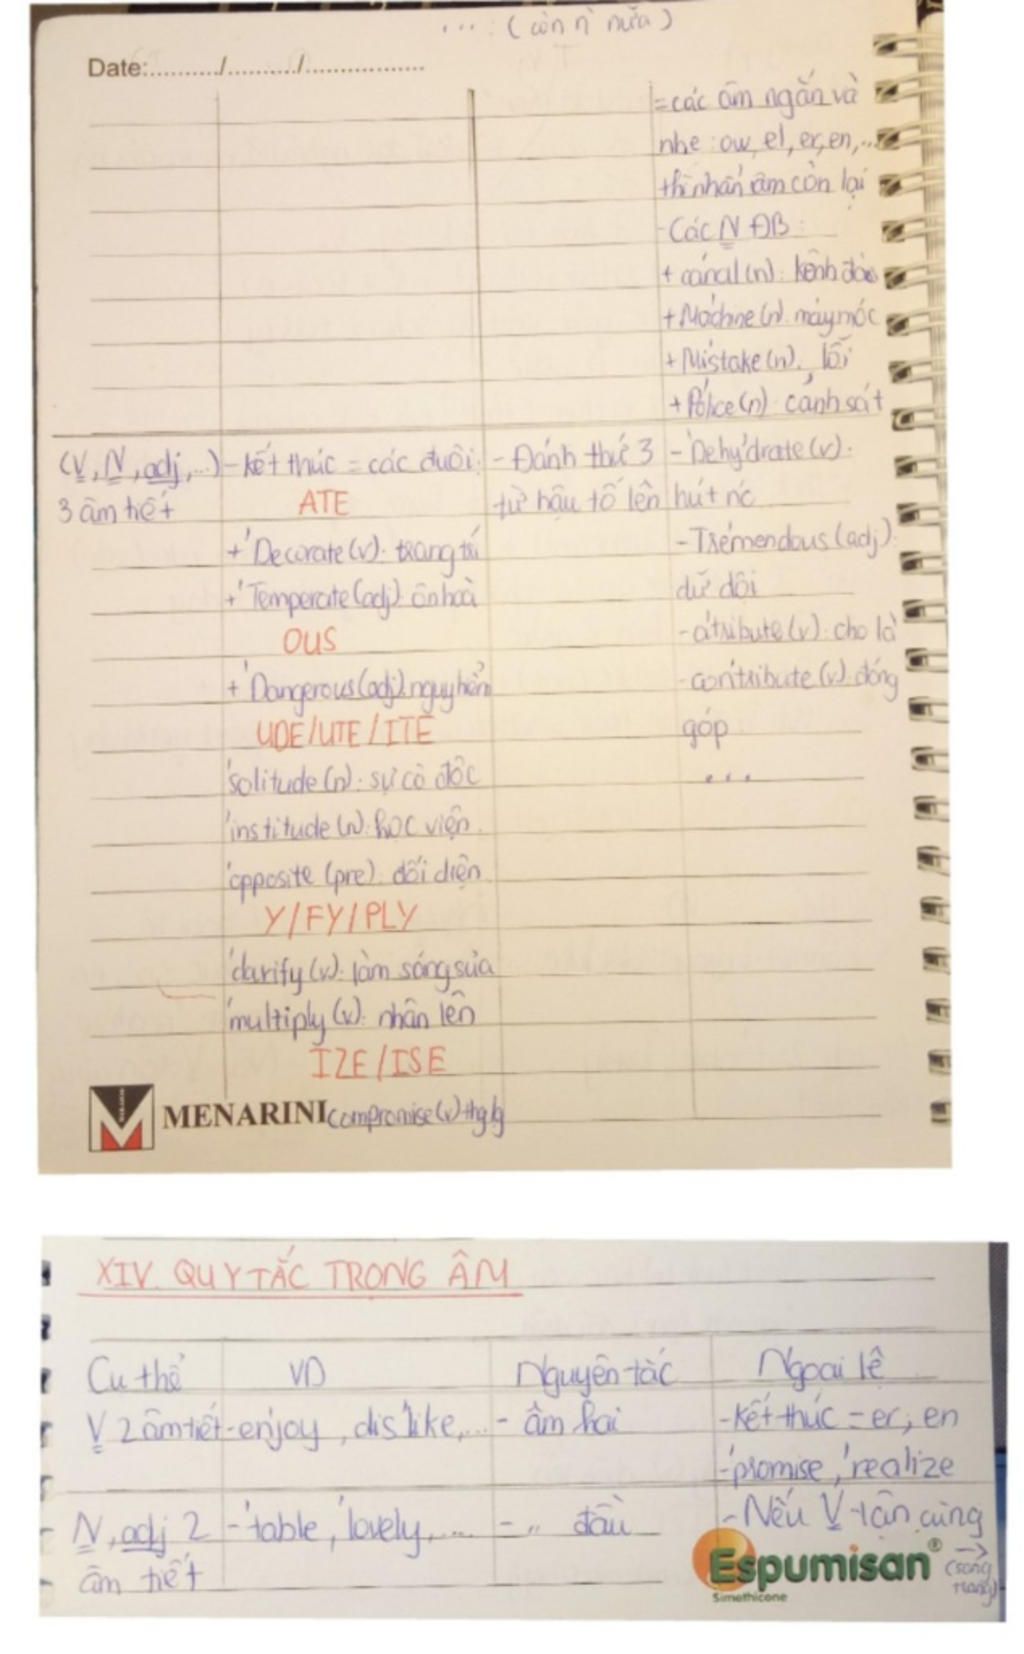 ... : (còn n` nữa)
Date:........../........../.................
= các âm ngắn và
nhẹ : ow, el, er, en,...
thì nhấn âm còn lại
- Các N ĐB :
+ ca'nal (n): kênh đào
+ Ma'chine (n): máy móc
+ Mis'take (n): lỗi
+ Po'lice (n): cảnh sát
(V, N, adj,...)
3 âm tiết
- kết thúc = các đuôi:
ATE
+ 'Decorate (v): trang trí
+ 'Temperate (adj): ôn hoà
OUS
+ 'Dangerous (adj): nguy hiểm
UDE/UTE/ITE
'solitude (n): sự cô độc
'institude (n): học viện
'opposite (pre): đối diện
Y/FY/PLY
'clarify (v): làm sáng sủa
'multiply (v): nhân lên
IZE/ISE
compromise (v) thg lg
- Đánh thứ 3
từ hậu tố lên
- 'Dehy'drate (v):
hút nc
- Tre'mendous (adj):
dữ dội
- a'tribute (v): cho là
- con'tribute (v): đóng
góp
...
MENARINI
XIV. QUY TẮC TRỌNG ÂM
Cụ thể VD Nguyên tắc Ngoại lệ
V 2 âm tiết - enjoy, dis'like,... - âm hai - Kết thúc = er, en
- 'promise, 'realize
N, adj 2 - 'table, 'lovely, ... - " đầu - Nếu V tận cùng
âm tiết
Espumisan®
Simethicone
(sang
trang)